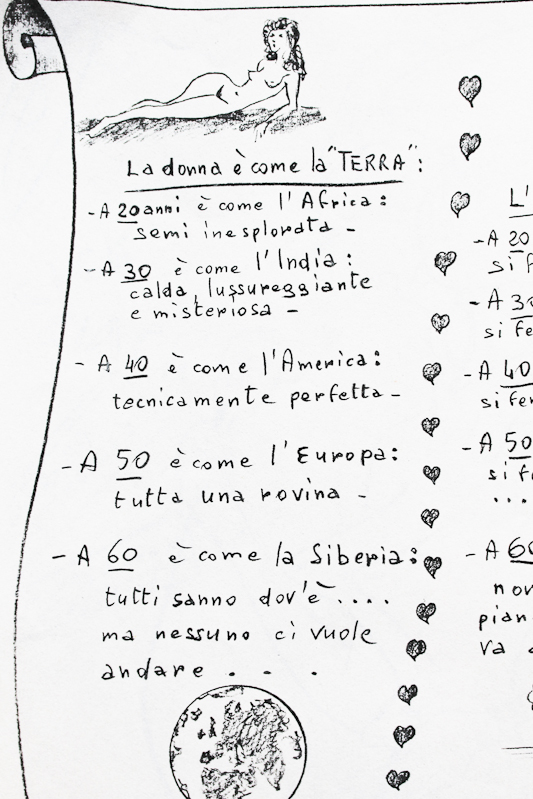 La donna è come la "TERRA":
-A 20 anni è come l'Africa:
semi inesplorata -
-A 30 è come l'India:
calda, lussureggiante
e misteriosa -
- A 40 è come l'America:
tecnicamente perfetta -
- A 50 è come l'Europa:
tutta una rovina -
- A 60 è come la Siberia:
tutti sanno dov'è ....
ma nessuno ci vuole
andare . . .
L'
-A 20
si f
-A 3
si fe
-A 40
si fer
-A 50
si f
...
-A 60
non
pian
va